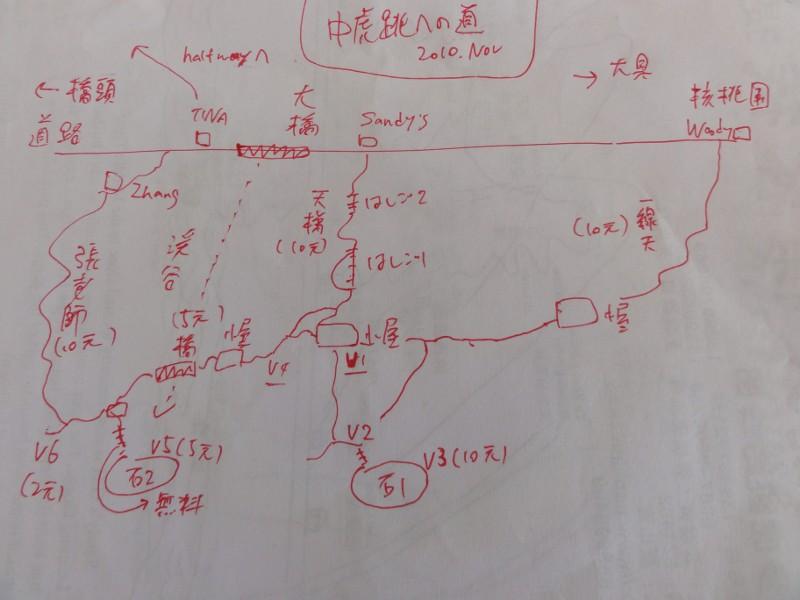 中虎跳への道
2010.Nov
halfwayへ
← 橋頭
道路
TWA
大橋
Sandy's
→ 大具
核桃園
Woody
Zhang
張老師
(10元)
渓谷
(5元)
橋
小屋
天梯
(10元)
はしご2
はしご1
小屋
V1
V4
一線天
(10元)
小屋
V2
V3(10元)
石1
V6
(2元)
V5(5元)
石2
→無料